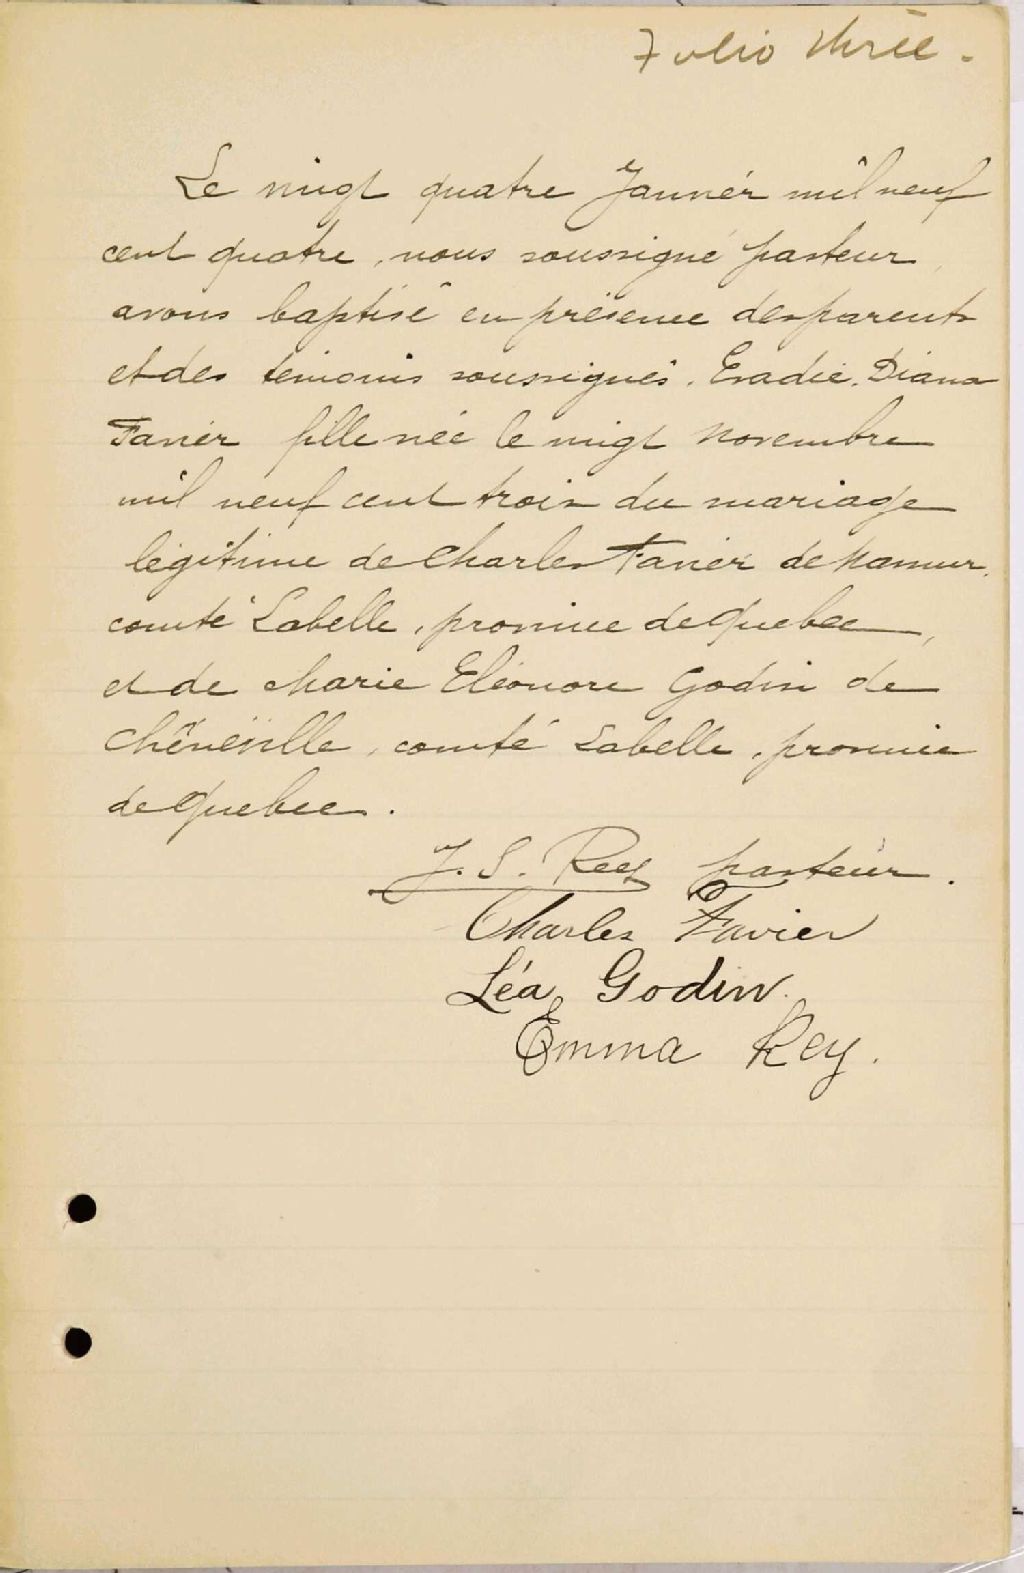 Folio three.
Le vingt quatre Janvier mil neuf
cent quatre, nous soussigné pasteur,
avons baptisé en présence des parents
et des témoins soussignés. Eradie. Diana
Favier fille née le vingt novembre
mil neuf cent trois du mariage
légitime de Charles Favier de Namur,
comté Labelle, province de Quebec,
et de Marie Eléonore Godin de
Chénéville, comté Labelle, province
de Quebec.
J. S. Rey pasteur.
Charles Favier
Léa Godin.
Emma Rey.